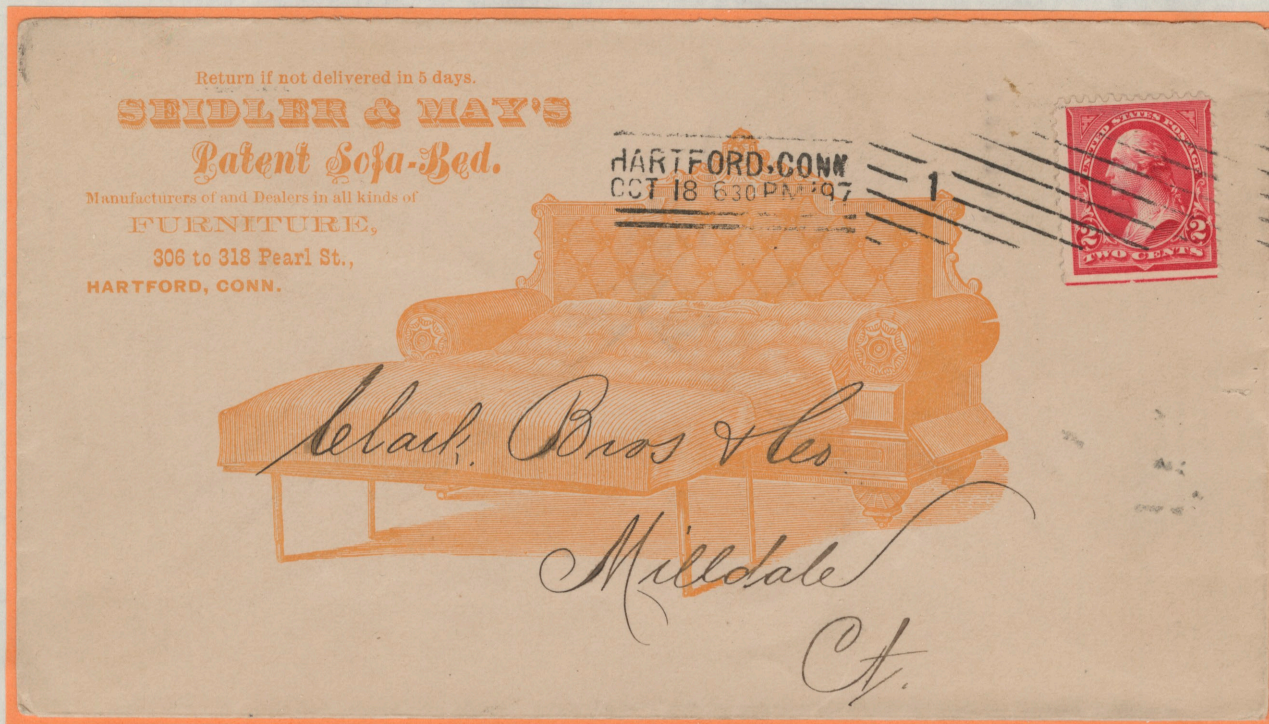 Return if not delivered in 5 days.
SEIDLER & MAY'S
Patent Sofa-Bed.
Manufacturers of and Dealers in all kinds of
FURNITURE,
306 to 318 Pearl St.,
HARTFORD, CONN.
HARTFORD, CONN
OCT 18 630 PM '97
1
UNITED STATES POSTAGE
2 2
TWO CENTS
Clark Bros & Co
Milldale
Ct.